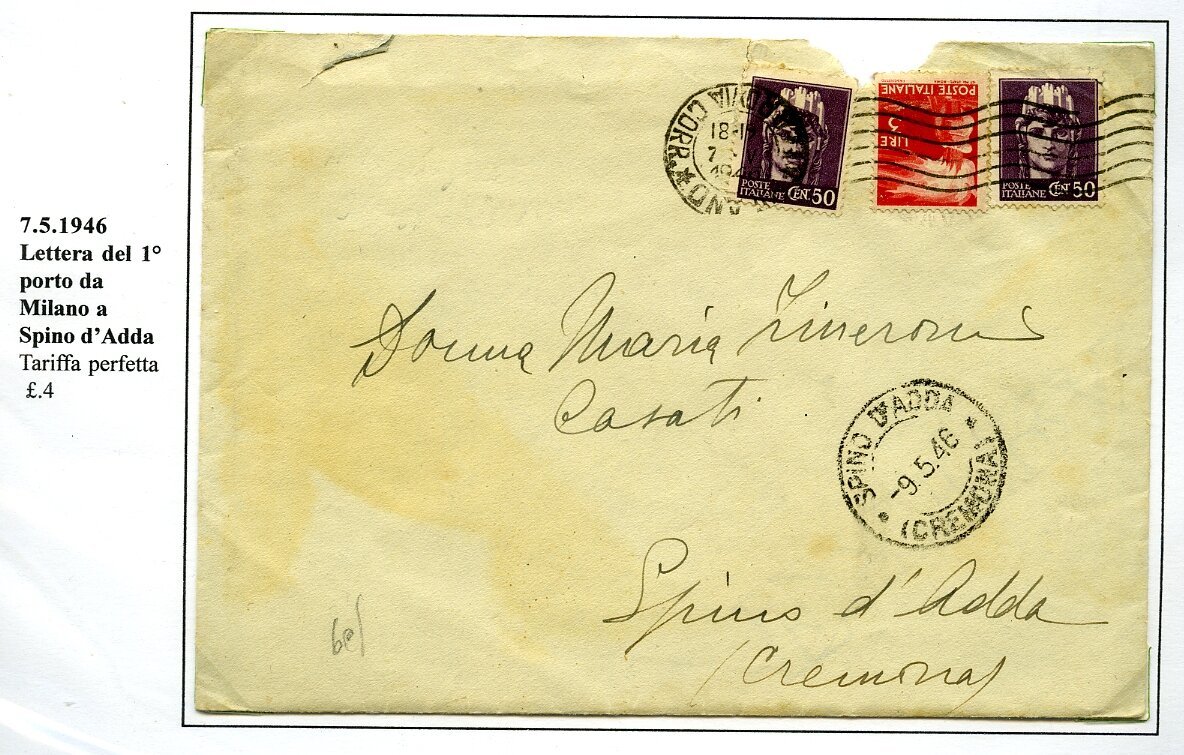 7.5.1946
Lettera del 1°
porto da
Milano a
Spino d'Adda
Tariffa perfetta
£.4
CORR.
18-1
POSTE
ITALIANE CENT. 50
POSTE ITALIANE
LIRE 3
POSTE
ITALIANE CENT. 50
Donna Maria
Casati
SPINO D'ADDA
-9.5.46
(CREMONA)
Spino d'Adda
(Cremona)